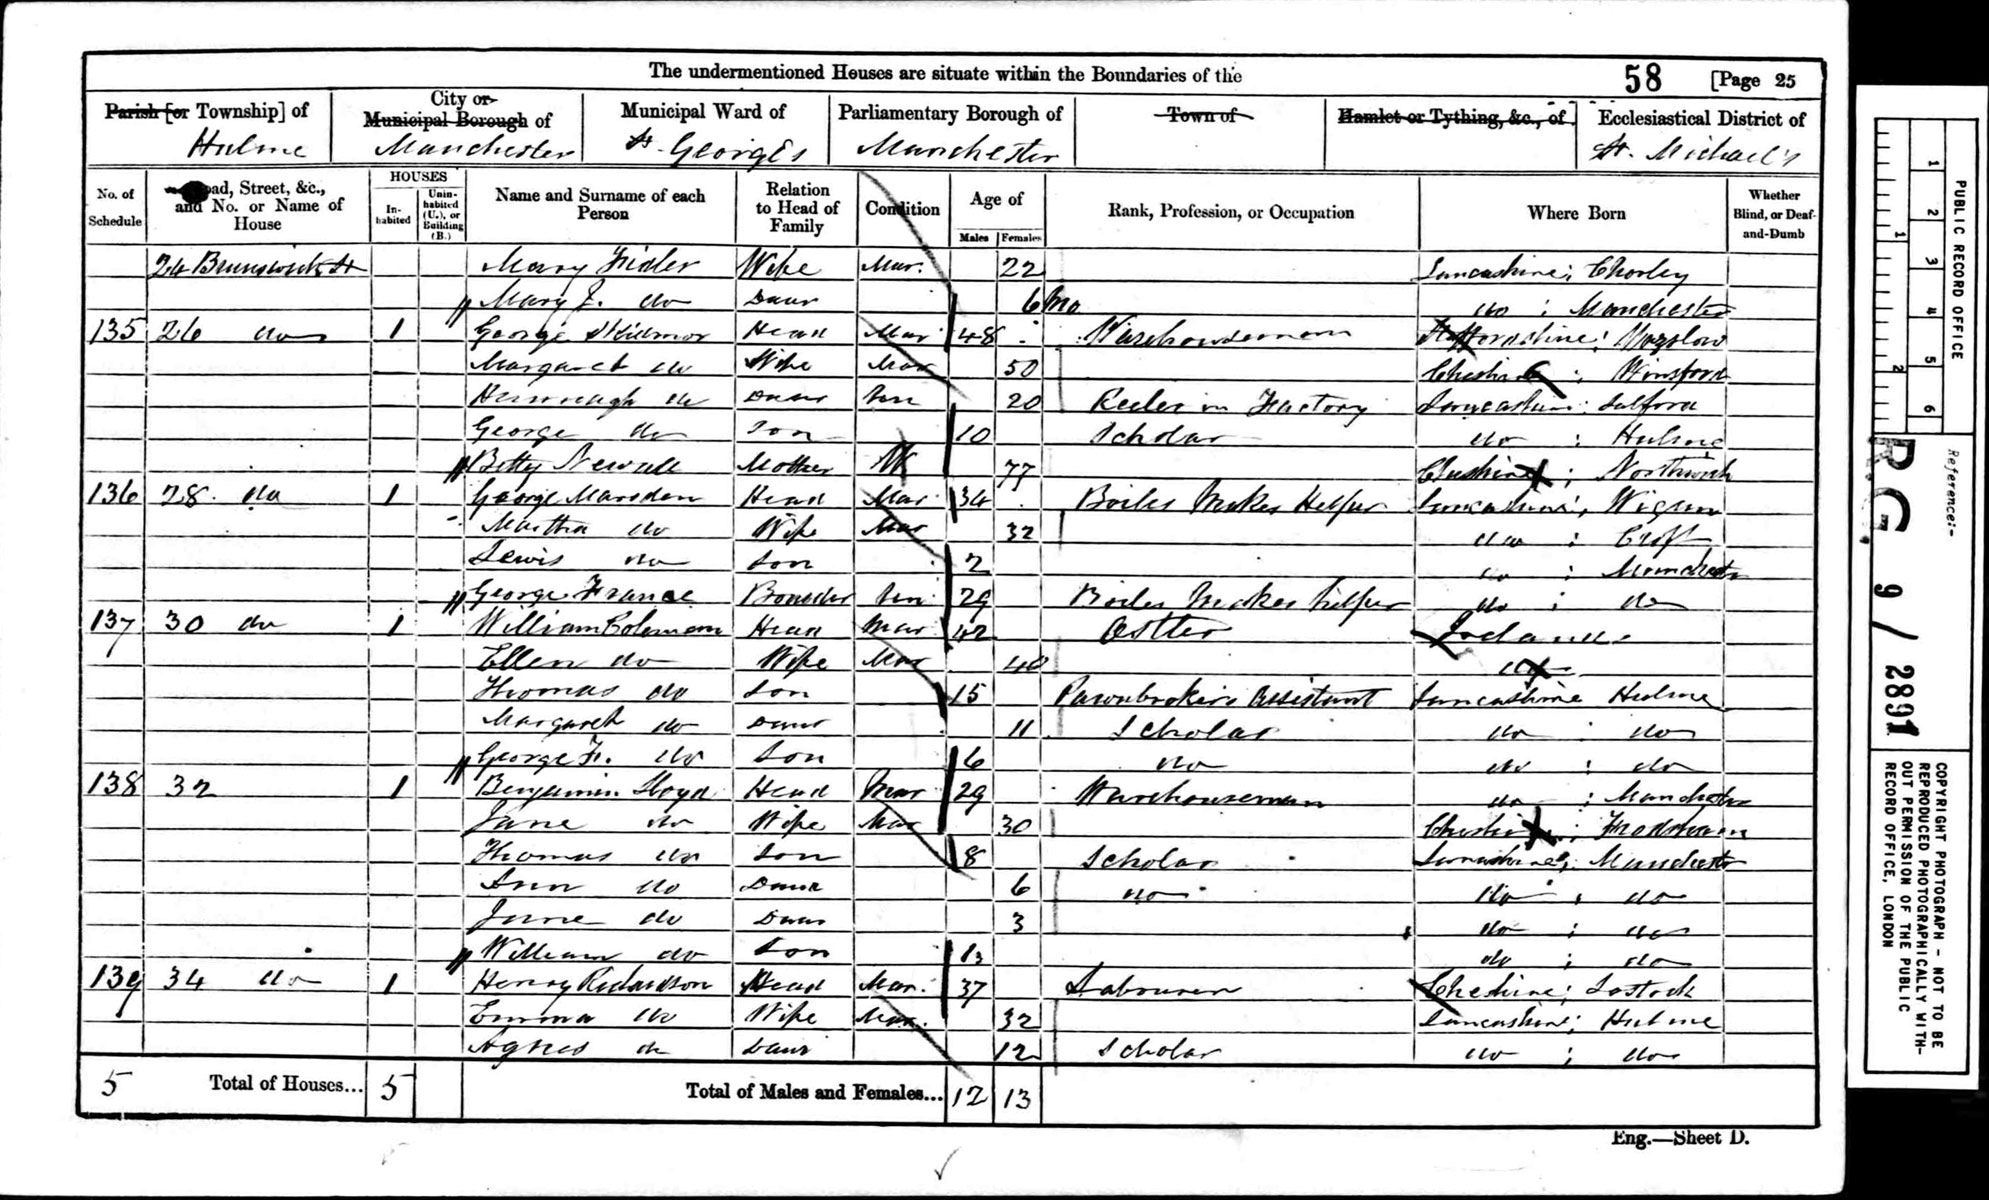 The undermentioned Houses are situate within the Boundaries of the 58 [Page 25
Parish [or Township] of City or Municipal Borough of Municipal Ward of Parliamentary Borough of Town of Hamlet or Tything, &c., of Ecclesiastical District of
Hulme Manchester St. Georges Manchester St. Michael's
No. of Schedule Road, Street, &c., and No. or Name of House HOUSES Inhabited Uninhabited (U.), or Building (B.) Name and Surname of each Person Relation to Head of Family Condition Age of Males Females Rank, Profession, or Occupation Where Born Whether Blind, or Deaf-and-Dumb
24 Brunswick St Mary Fidler Wife Mar. 22 Lancashire; Chorley
Mary J. do Daur 6 Mo do ; Manchester
135 26 do 1 George Skidmor Head Mar 48 Warehouseman Staffordshire;
Margaret do Wife Mar 50 Cheshire ; Winsford
Hannah do Daur Un 20 Reeler in Factory Lancashire; Salford
George do Son 10 Scholar do ; Hulme
Betty Newall Mother W 77 Cheshire ; Northwich
136 28 do 1 George Marsden Head Mar 34 Boiler Maker Helper Lancashire; Wigan
Martha do Wife Mar 32 do ; Croft
Lewis do Son 2 do ; Manchester
George France Boarder Un 29 Boiler Maker helper do ; do
137 30 do 1 William Coleman Head Mar 42 Ostler Ireland
Ellen do Wife Mar 40 do
Thomas do Son 15 Pawnbrokers Assistant Lancashire Hulme
Margaret do Daur 11 Scholar do do
George F. do Son 6 do do ; do
138 32 1 Benjamin Lloyd Head Mar 29 Warehouseman do ; Manchester
Jane do Wife Mar 30 Cheshire ; Frodsham
Thomas do Son 8 Scholar Lancashire; Manchester
Ann do Daur 6 do do ; do
Jane do Daur 3 do ; do
William do Son 13 do ; do
139 34 do 1 Henry Richardson Head Mar. 37 Labourer Cheshire; Lostock
Emma do Wife Mar. 32 Lancashire; Hulme
Agnes do Daur 12 Scholar do ; do
5 Total of Houses... 5 Total of Males and Females... 12 13
Eng.—Sheet D.
PUBLIC RECORD OFFICE
1 2 3 4 5 6
1 2
Reference:-
RG 9/2891
COPYRIGHT PHOTOGRAPH - NOT TO BE
REPRODUCED PHOTOGRAPHICALLY WITH-
OUT PERMISSION OF THE PUBLIC
RECORD OFFICE, LONDON